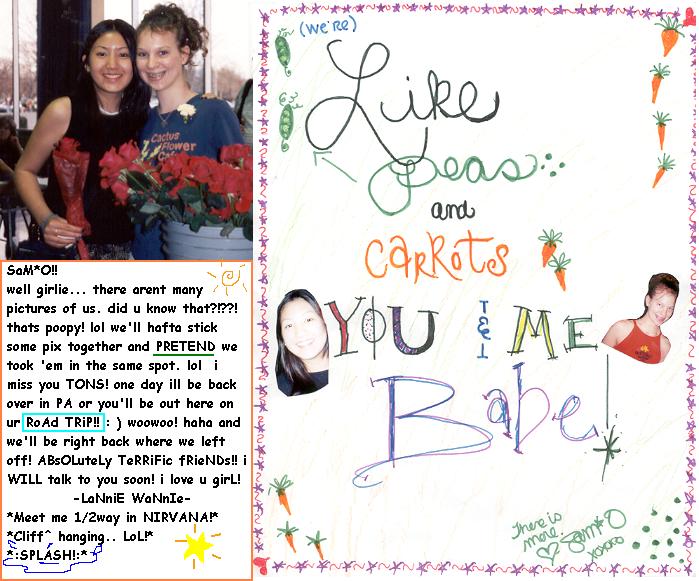 Cactus
Flower
SaM*O!!
well girlie... there arent many
pictures of us. did u know that?!??!
thats poopy! lol we'll hafta stick
some pix together and PRETEND we
took 'em in the same spot. lol i
miss you TONS! one day ill be back
over in PA or you'll be out here on
ur RoAd TRiP!! : ) woowoo! haha and
we'll be right back where we left
off! ABsOLuteLy TeRRiFic fRieNDs!! i
WILL talk to you soon! i love u girL!
-LaNniE WaNnIe-
*Meet me 1/2way in NIRVANA!*
*Cliff^ hanging.. LoL!*
*:SPLASH!:*
(we're)
Like
peas
and
CaRRots
YOU & ME
Babe!
There is
more
Sam*O
xoxoxo